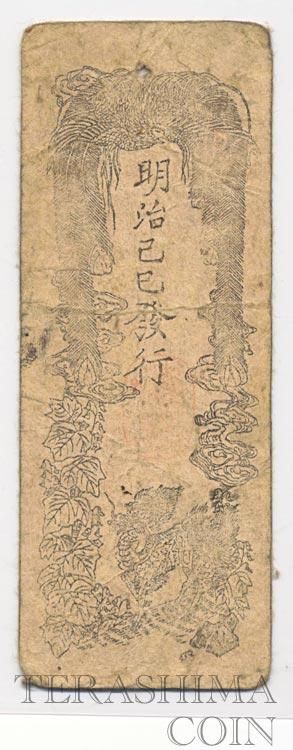 明治己巳發行
TERASHIMA
COIN